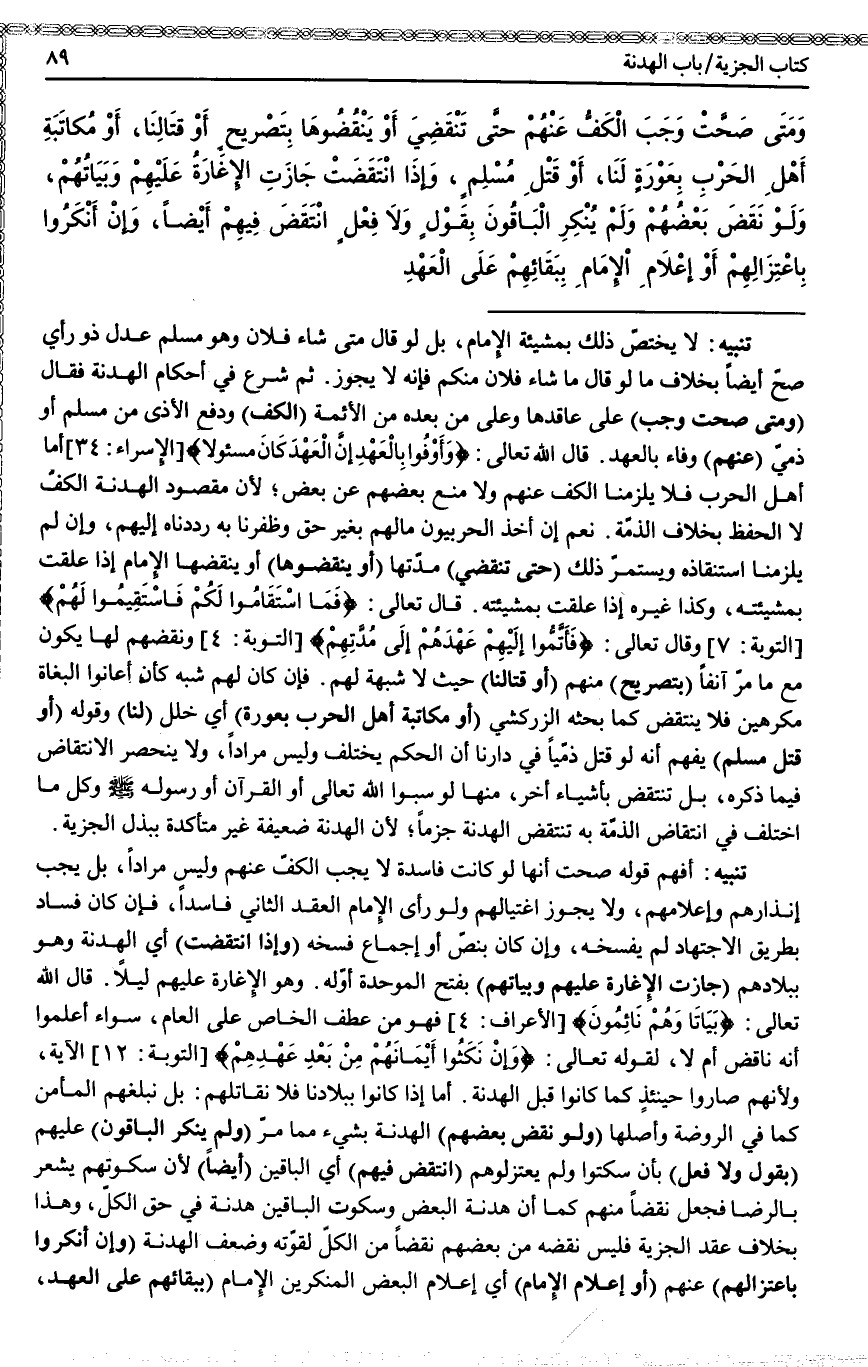 كتاب الجزية/ باب الهدنة
٨٩
وَمَتَى صَحَّتْ وَجَبَ الْكَفُّ عَنْهُمْ حتَّى تَنْقَضِيَ أَوْ يَنْقُضُوهَا بِتَصْرِيحٍ أَوْ قتَالِنَا، أَوْ مُكاتَبَةِ
أَهْلِ الحَرْبِ بِعَوْرَةٍ لَنَا، أَوْ قَتْلِ مُسْلِمٍ، وَإذَا انْتَقَضَتْ جَازَتِ الإِغَارَةُ عَلَيْهِمْ وَبَيَاتُهُمْ،
وَلَوْ نَقَضَ بَعْضُهُمْ وَلَمْ يُنْكِرِ الْبَاقُونَ بِقَوْلٍ وَلاَ فِعْلٍ انْتَقَضَ فِيهِمْ أَيْضاً، وَإنْ أَنْكَرُوا
بِاعْتِزَالِهِمْ أَوْ إعْلَامِ الْإِمَامِ بِبَقَائِهِمْ عَلَى الْعَهْدِ
تنبيه: لا يختصّ ذلك بمشيئة الإمام، بل لو قال متى شاء فلان وهو مسلم عدل ذو رأي
صحّ أيضاً بخلاف ما لو قال ما شاء فلان منكم فإنه لا يجوز. ثم شرع في أحكام الهدنة فقال
(ومتى صحت وجب) على عاقدها وعلى من بعده من الأئمة (الكف) ودفع الأذى من مسلم أو
ذميّ (عنهم) وفاء بالعهد. قال الله تعالى: ﴿وَأَوْفُوا بِالْعَهْدِ إِنَّ الْعَهْدَ كَانَ مسئولا﴾ [الإسراء: ٣٤] أما
أهل الحرب فلا يلزمنا الكف عنهم ولا منع بعضهم عن بعض؛ لأن مقصود الهدنة الكفّ
لا الحفظ بخلاف الذمّة. نعم إن أخذ الحربيون مالهم بغير حق وظفرنا به رددناه إليهم، وإن لم
يلزمنا استنقاذه ويستمرّ ذلك (حتى تنقضي) مدّتها (أو ينقضوها) أو ينقضها الإمام إذا علقت
بمشيئته، وكذا غيره إذا علقت بمشيئته. قال تعالى: ﴿فَمَا اسْتَقَامُوا لَكُمْ فَاسْتَقِيمُوا لَهُمْ﴾
[التوبة: ٧] وقال تعالى: ﴿فَأَتَّمُوا إِلَيْهِمْ عَهْدَهُمْ إِلَى مُدَّتِهِمْ﴾ [التوبة: ٤] ونقضهم لها يكون
مع ما مرّ آنفاً (بتصريح) منهم (أو قتالنا) حيث لا شبهة لهم. فإن كان لهم شبه كأن أعانوا البغاة
مكرهين فلا ينتقض كما بحثه الزركشي (أو مكاتبة أهل الحرب بعورة) أي خلل (لنا) وقوله (أو
قتل مسلم) يفهم أنه لو قتل ذمّياً في دارنا أن الحكم يختلف وليس مراداً، ولا ينحصر الانتقاض
فيما ذكره، بل تنتقض بأشياء أخر، منها لو سبوا الله تعالى أو القرآن أو رسوله ﷺ وكل ما
اختلف في انتقاض الذمّة به تنتقض الهدنة جزماً؛ لأن الهدنة ضعيفة غير متأكدة ببذل الجزية.
تنبيه: أفهم قوله صحت أنها لو كانت فاسدة لا يجب الكفّ عنهم وليس مراداً، بل يجب
إنذارهم وإعلامهم، ولا يجوز اغتيالهم ولو رأى الإمام العقد الثاني فاسداً، فإن كان فساد
بطريق الاجتهاد لم يفسخه، وإن كان بنصّ أو إجماع فسخه (وإذا انتقضت) أي الهدنة وهو
ببلادهم (جازت الإغارة عليهم وبياتهم) بفتح الموحدة أوّله. وهو الإغارة عليهم ليلاً. قال الله
تعالى: ﴿بَيَاتَا وَهُمْ نَائِمُونَ﴾ [الأعراف: ٤] فهو من عطف الخاص على العام، سواء أعلموا
أنه ناقض أم لا، لقوله تعالى: ﴿وَإِنْ نَكَثُوا أَيْمَانَهُمْ مِنْ بَعْدِ عَهْدِهِمْ﴾ [التوبة: ١٢] الآية،
ولأنهم صاروا حينئذٍ كما كانوا قبل الهدنة. أما إذا كانوا ببلادنا فلا نقاتلهم: بل نبلغهم المأمن
كما في الروضة وأصلها (ولو نقض بعضهم) الهدنة بشيء مما مرّ (ولم ينكر الباقون) عليهم
(بقول ولا فعل) بأن سكتوا ولم يعتزلوهم (انتقض فيهم) أي الباقين (أيضاً) لأن سكوتهم يشعر
بالرضا فجعل نقضاً منهم كما أن هدنة البعض وسكوت الباقين هدنة في حق الكلّ، وهذا
بخلاف عقد الجزية فليس نقضه من بعضهم نقضاً من الكلّ لقوّته وضعف الهدنة (وإن أنكروا
باعتزالهم) عنهم (أو إعلام الإمام) أي إعلام البعض المنكرين الإمام (ببقائهم على العهد،